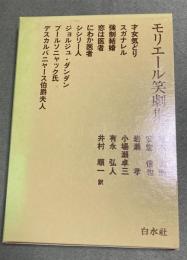 モリエール笑劇集
才女気どり
スガナレル
強制結婚
恋は医者
にわか医者
シシリー人
ジョルジュ・ダンダン
プールソニャック氏
デスカルバニャース伯爵夫人
岩瀬 孝
小場瀬卓三
有永 弘人
井村 順一 訳
白水社